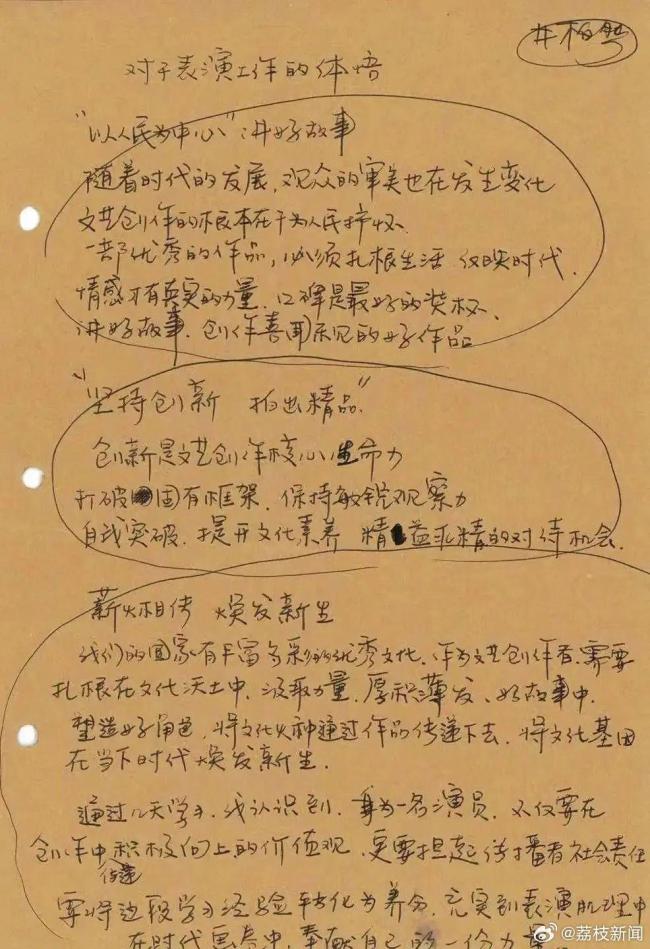 井柏然
对于表演工作的体悟
"以人民为中心"讲好故事
随着时代的发展,观众的审美也在发生变化
文艺创作的根本在于为人民抒怀.
一部优秀的作品,必须扎根生活 反映时代.
情感才有真实的力量.口碑是最好的奖杯、
讲好故事.创作喜闻乐见的好作品
"坚持创新 拍出精品"
创新是文艺创作核心生命力
打破固有框架.保持敏锐观察力
自我突破.提升文化素养 精益求精的对待机会.
薪火相传 焕发新生
我们的国家有丰富多彩的优秀文化.作为文艺创作者.需要
扎根在文化沃土中.汲取力量.厚积薄发、好故事中.
塑造好角色.将文化火种通过作品传递下去.将文化基因
在当下时代焕发新生.
通过几天学习.我认识到.身为一名演员.不仅要在
创作中积极向上的价值观.更要担起传播者社会责任
传递
要将这段学习经验转化为养分.充实到表演肌理中
在时代画卷中.奉献自己的一份力量
@荔枝新闻